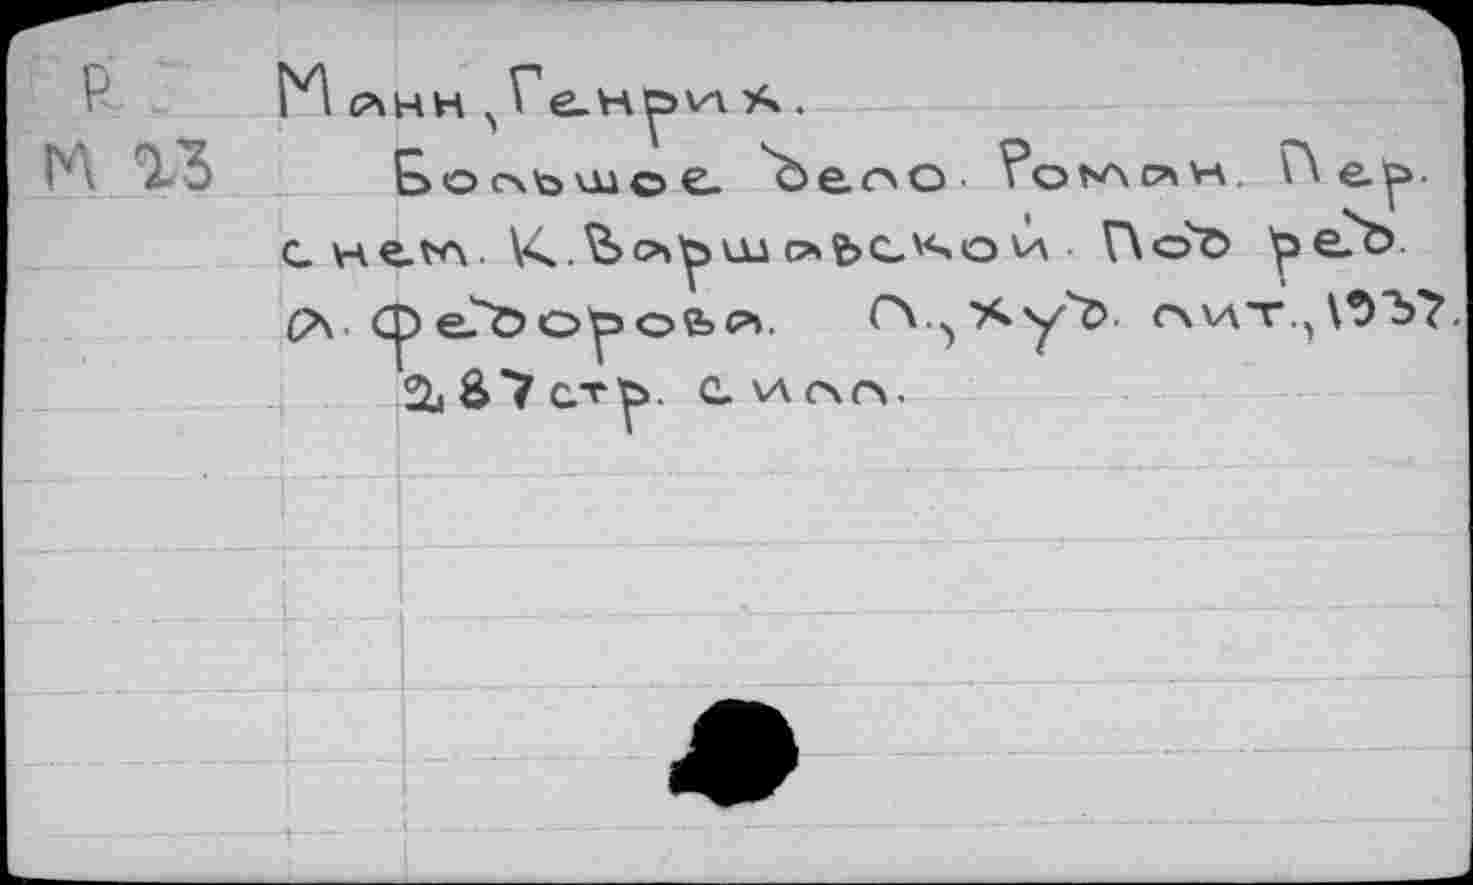 Р Манн, Генрих.
М 23 Большое дело. Роман. Пер.
с нем. К. Варшавской. Под ред.
А. Федорова. Л., Худ. лит., 1937.
287 стр. с илл.